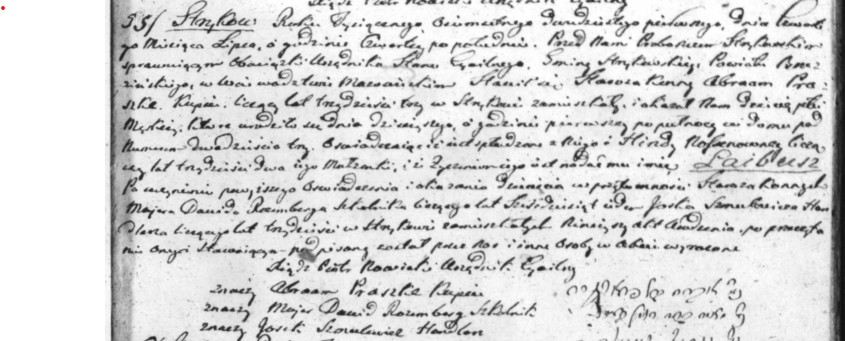 Xiądz Piotr Nowicki Urzędnik Cywilny
55/ Stryków. Roku Tysiącznego Ośmsetnego dwudziestego pierwszego, dnia czwarte
go Miesiąca Lipca, o godzinie czwartey po południu. Przed Nami Proboszczem Strykowskim
sprawuiącym Obowiązki Urzędnika Stanu Cywilnego, Gminy Strykowskiey, Powiatu Brze
zińskiego, w Woiewodztwie Mazowieckim Stawił się Starozakonny Abraam Pra
szkie Kupiec, liczący lat trzydzieści trzy w Strykowie zamieszkały, i okazał Nam dziecię płci
Męskiey, które urodziło się dnia dzisieyszego, o godzinie pierwszey po północy w domu pod
Numerem dwadzieścia trzy. Oświadczaiąc iż iest spłodzone z Niego i Hindy liczą
cey lat trzydzieści dwa iego Małżonki, i iż życzeniem iego iest nadać mu imię Laibusz
Po uczynieniu powyższego Oświadczenia i okazaniu dziecięcia w przytomności Starozakonnych
Majera Dawida Rozemberga Szkolnika liczącego lat sześćdziesiąt, tudzież Joska Szmulewicza Han
dlerza liczącego lat trzydzieści w Strykowie zamieszkałych. Ninieyszy Akt Urodzenia, po przeczyta
niu onego Stawaiącym podpisany został przez Nas i inne Osoby w Akcie wyrażone
Xiądz Piotr Nowicki Urzędnik Cywilny
znaczy Abraam Praszkie Kupiec
znaczy Majer Dawid Rozemberg Szkolnik
znaczy Josek Szmulewicz Handlerz